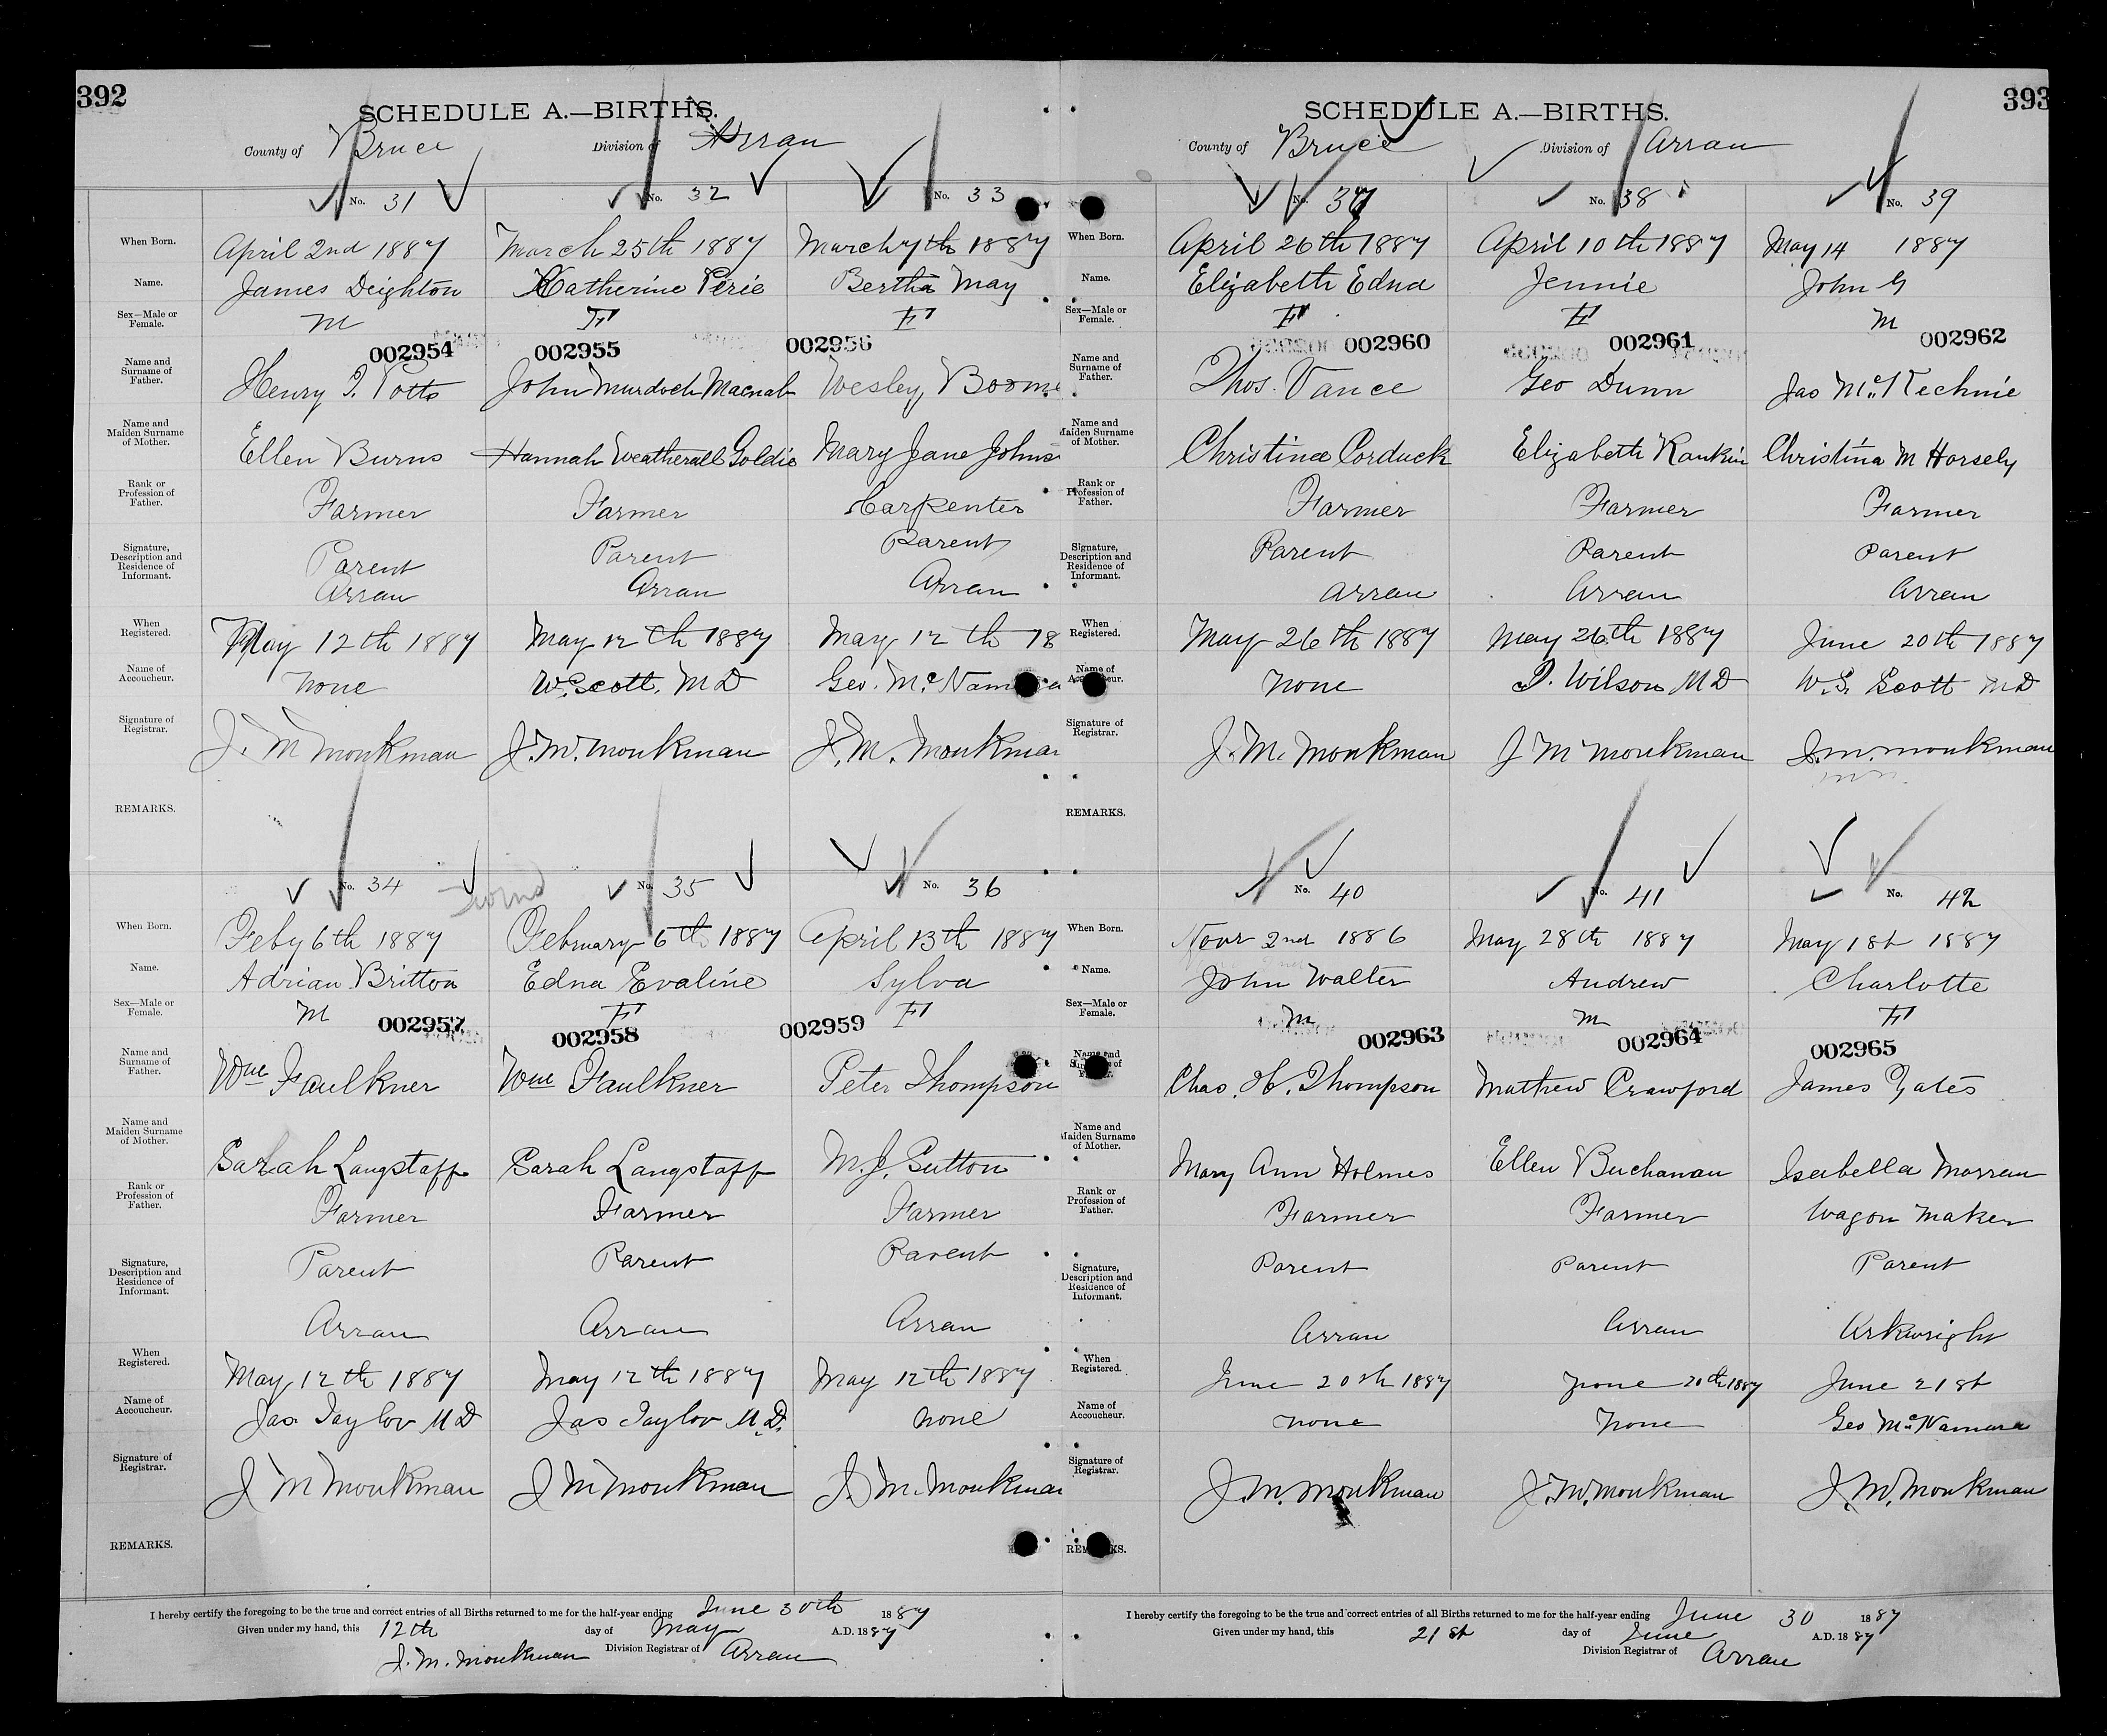 392
SCHEDULE A.—BIRTHS.
County of Bruce Division of Arran
No. 31 No. 32 No. 33
When Born. April 2nd 1887 March 25th 1887 March 7th 1887
Name. James Deighton Katherine Perie Bertha May
Sex—Male or Female. M F F
002954 002955 002956
Name and Surname of Father. Henry T. Potts John Murdoch Macnab Wesley Boome
Name and Maiden Surname of Mother. Ellen Burns Hannah Weatherall Goldie Mary Jane Johns
Rank or Profession of Father. Farmer Farmer Carpenter
Signature, Description and Residence of Informant. Parent Parent Parent
Arran Arran Arran
When Registered. May 12th 1887 May 12th 1887 May 12th 18
Name of Accoucheur. None W. Scott. MD Geo. McNam
Signature of Registrar. J. M Monkman J. M. Monkman J. M. Monkman
REMARKS.
No. 34 Twins No. 35 No. 36
When Born. Feby 6th 1887 February 6th 1887 April 13th 1887
Name. Adrian Britton Edna Evaline Sylva
Sex—Male or Female. M F F
002957 002958 002959
Name and Surname of Father. Wm Faulkner Wm Faulkner Peter Thompson
Name and Maiden Surname of Mother. Sarah Langstaff Sarah Langstaff M. J. Sutton
Rank or Profession of Father. Farmer Farmer Farmer
Signature, Description and Residence of Informant. Parent Parent Parent
Arran Arran Arran
When Registered. May 12th 1887 May 12th 1887 May 12th 1887
Name of Accoucheur. Jas Taylor MD Jas Taylor M.D. none
Signature of Registrar. J M Monkman J M Monkman J. M. Monkman
REMARKS.
I hereby certify the foregoing to be the true and correct entries of all Births returned to me for the half-year ending June 30th 1887
Given under my hand, this 12th day of May A.D. 1887
J. M. Monkman Division Registrar of Arran
393
SCHEDULE A.—BIRTHS.
County of Bruce Division of Arran
No. 37 No. 38 No. 39
When Born. April 26th 1887 April 10th 1887 May 14 1887
Name. Elizabeth Edna Jennie John G
Sex—Male or Female. F F M
002960 002961 002962
Name and Surname of Father. Thos. Vance Geo Dunn Jas McKechnie
Name and Maiden Surname of Mother. Christina Corduck Elizabeth Rankin Christina M Horsely
Rank or Profession of Father. Farmer Farmer Farmer
Signature, Description and Residence of Informant. Parent Parent Parent
Arran Arran Arran
When Registered. May 26th 1887 May 26th 1887 June 20th 1887
Name of Accoucheur. None D. Wilson MD W. S. Scott MD
Signature of Registrar. J. M. Monkman J M Monkman J. M. Monkman
REMARKS.
No. 40 No. 41 No. 42
When Born. Novr 2nd 1886 May 28th 1887 May 1st 1887
Name. John Walter Andrew Charlotte
Sex—Male or Female. M M F
002963 002964 002965
Name and Surname of Father. Chas. H. Thompson Mathew Crawford James Yates
Name and Maiden Surname of Mother. Mary Ann Holmes Ellen Buchanan Isabella Morran
Rank or Profession of Father. Farmer Farmer Wagon Maker
Signature, Description and Residence of Informant. Parent Parent Parent
Arran Arran Arkwright
When Registered. June 20th 1887 June 20th 1887 June 21st
Name of Accoucheur. none None Geo McNamara
Signature of Registrar. J. M. Monkman J. M. Monkman J. M. Monkman
REMARKS.
I hereby certify the foregoing to be the true and correct entries of all Births returned to me for the half-year ending June 30 1887
Given under my hand, this 21st day of June A.D. 1887
Division Registrar of Arran